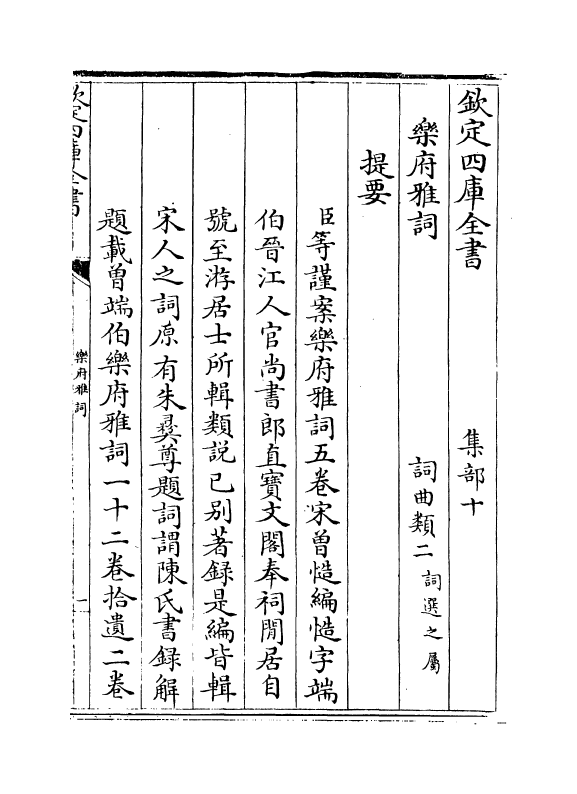 欽定四庫全書　　　　　集部十
樂府雅詞　　　　　詞曲類二詞選之屬
提要
臣等謹案樂府雅詞五卷宋曾慥編慥字端
伯晉江人官尚書郎直寶文閣奉祠閒居自
號至游居士所輯類說已别著録是編皆輯
宋人之詞原有朱彛尊題詞謂陳氏書録解
題載曾端伯樂府雅詞一十二卷拾遺二卷
欽定四庫全書
樂府雅詞
一